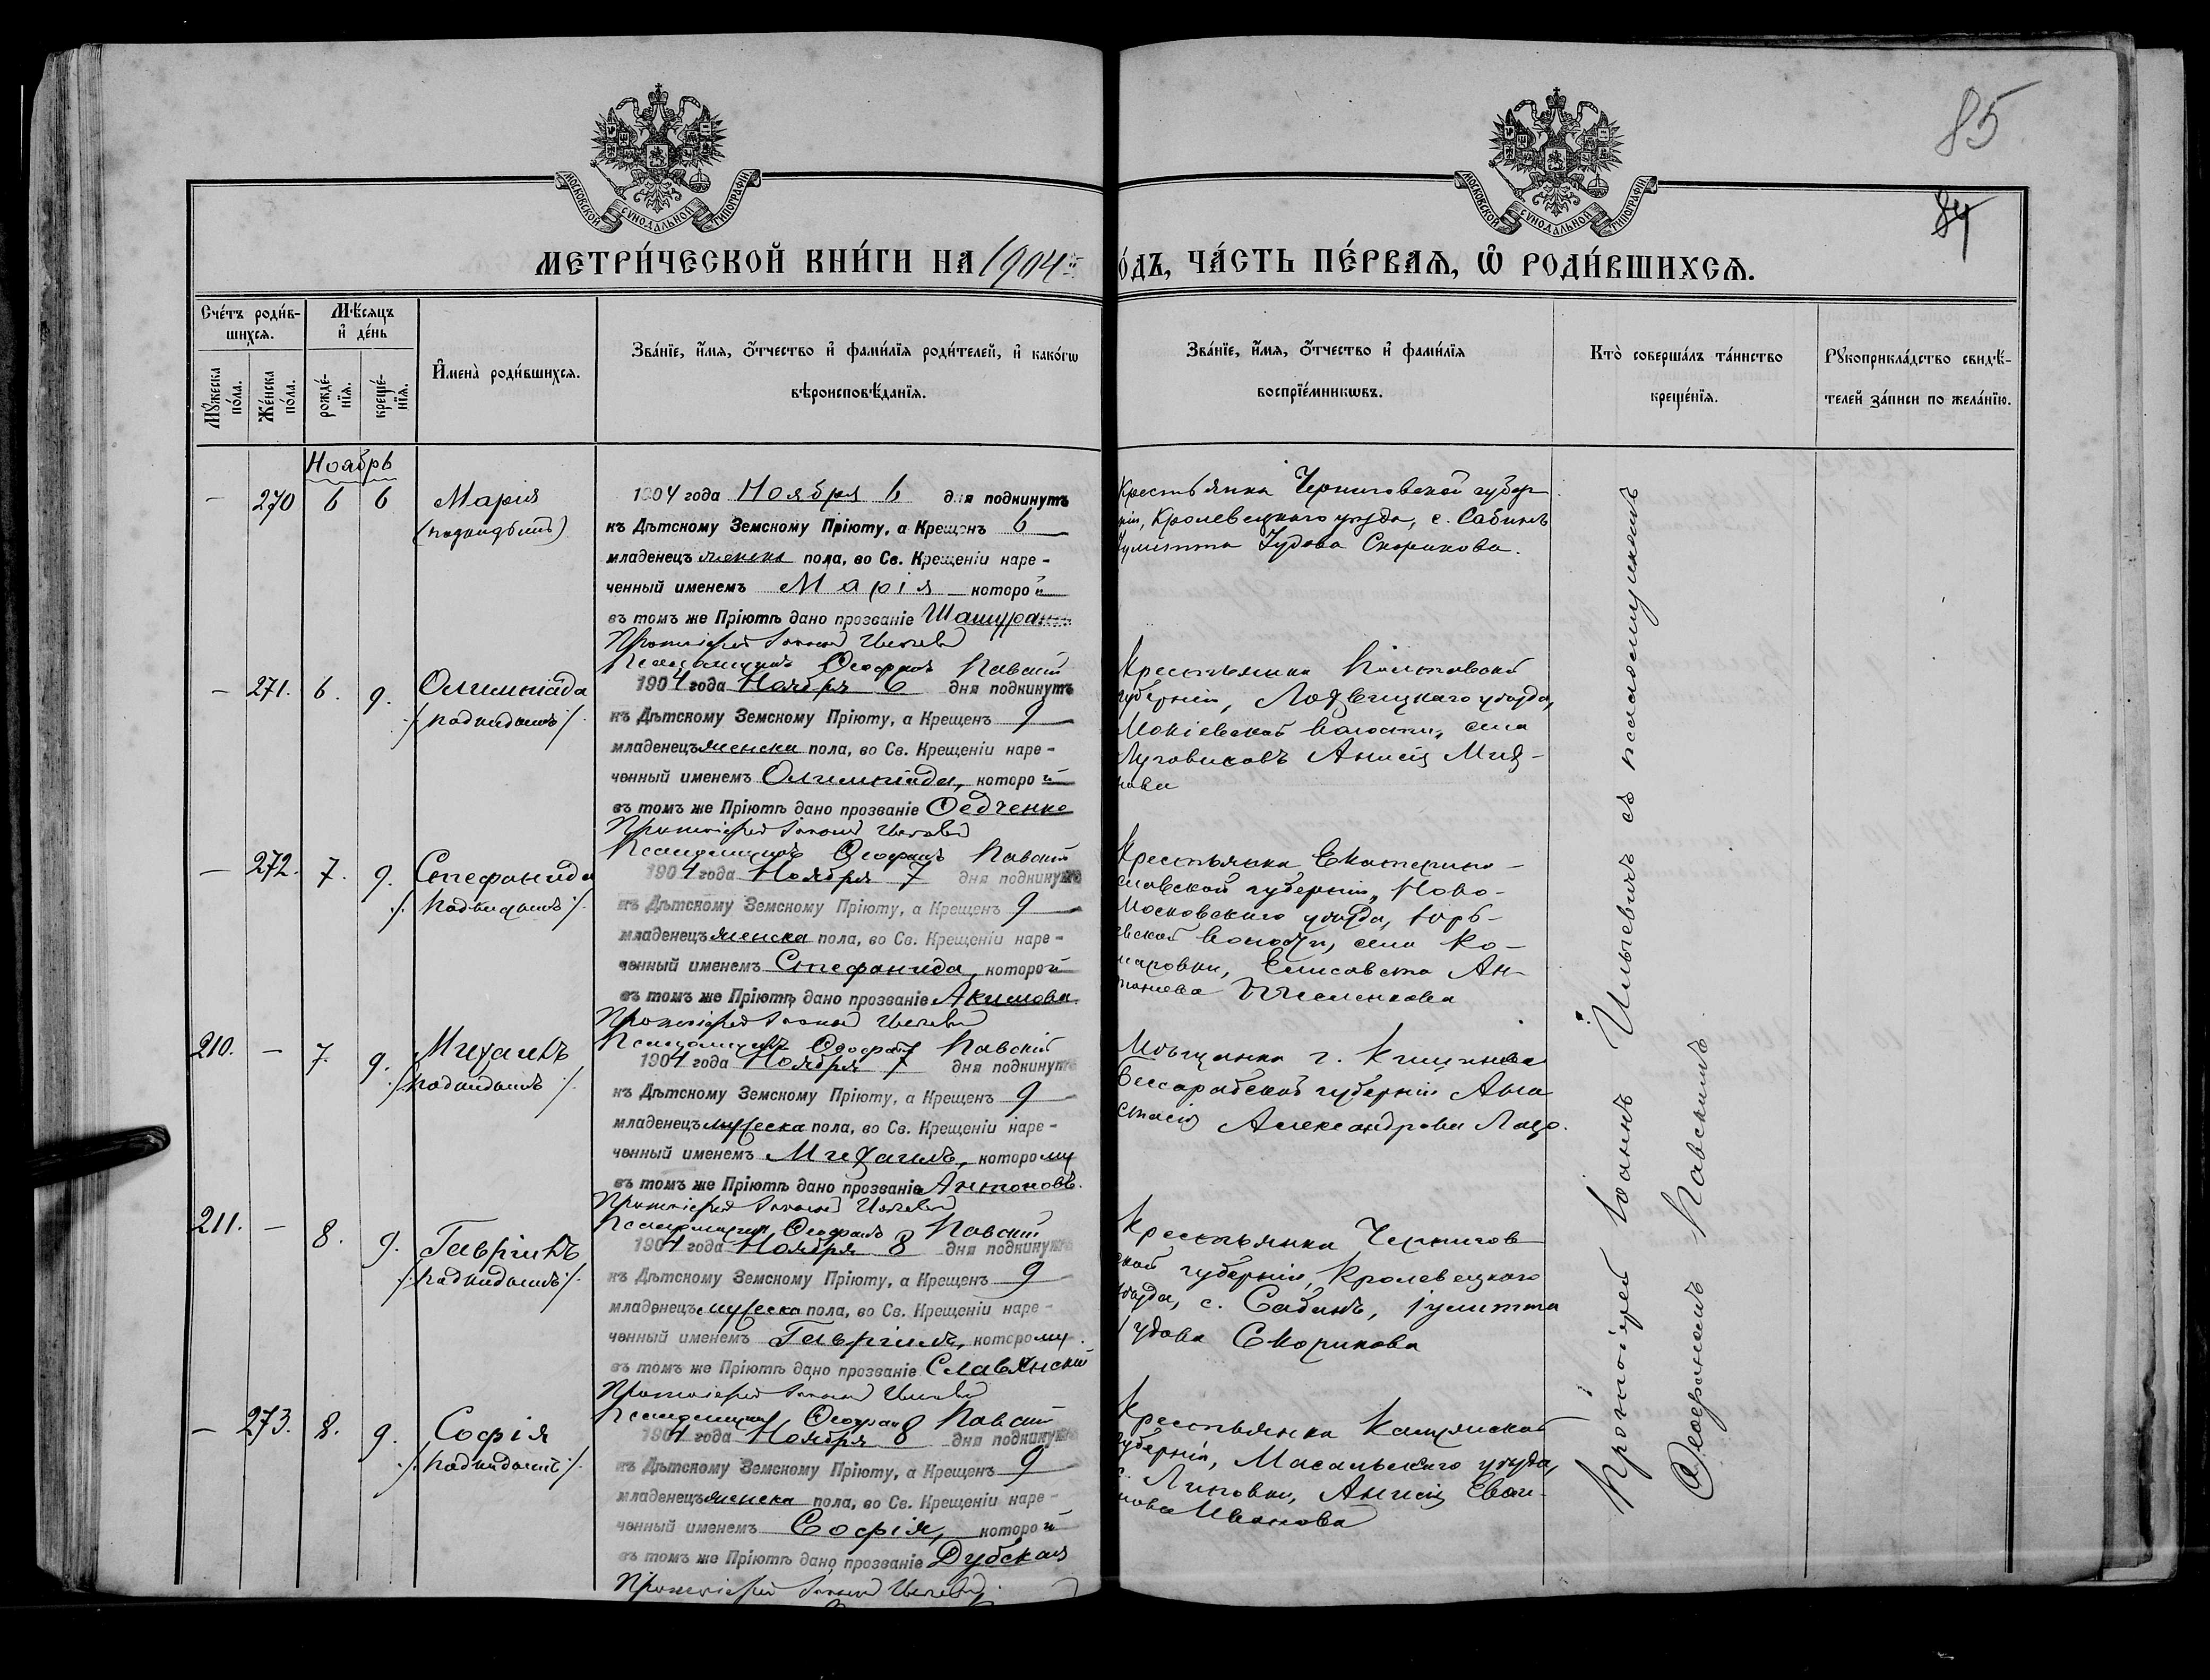 85
84
МОСКОВСКОЙ СѴНОДАЛЬНОЙ ТИПОГРАФІИ
МОСКОВСКОЙ СѴНОДАЛЬНОЙ ТИПОГРАФІИ
МЕТРИ́ЧЕСКОЙ КНИ́ГИ НА 1904й
о́дъ, ЧА́СТЬ ПЕ́РВАѦ, Ѡ РОДИ́ВШИХСѦ.
Сче́тъ роди́в-
шихсѧ.
Мꙋ́жеска по́ла.
Же́нска по́ла.
Мѣ́сѧцъ
и҆ де́нь
рожде́-
нїѧ.
креще́-
нїѧ.
И҆мена̀ роди́вшихсѧ.
Зва́нїе, и҆́мѧ, ѻ҆́тчество и҆ фами́лїѧ роди́телей, и҆ како́гѡ
вѣроисповѣ́данїѧ.
Зва́нїе, и҆́мѧ, ѻ҆́тчество и҆ фами́лїѧ
воспрїе́мникѡвъ.
Кто̀ соверша́лъ та́инство
креще́нїѧ.
Рꙋкоприкла́дство свидѣ́-
телей за́писи по жела́нїю.
Ноябрь
– 270 6 6 Марія
(подкидышъ)
1904 года Ноября 6 дня подкинутъ
къ Дѣтскому Земскому Пріюту, а Крещенъ 6
младенецъ женска пола, во Св. Крещеніи наре-
ченный именемъ Марія которой
въ томъ же Пріютѣ дано прозваніе
Протоіерей Іоаннъ
Псаломщикъ Ѳеофанъ Павскій
Крестьянка Черниговской губер-
ніи, Кролевецкаго уѣзда, с. Сабинъ
Іулитта Іудова Скорикова.
– 271. 6. 9. Олимпіада
/подкидышъ/.
1904 года Ноября 6 дня подкинутъ
къ Дѣтскому Земскому Пріюту, а Крещенъ 9
младенецъ женска пола, во Св. Крещеніи наре-
ченный именемъ Олимпіада, которой
въ томъ же Пріютѣ дано прозваніе Ѳедченко
Протоіерей Іоаннъ
Псаломщикъ Ѳеофанъ Павскій
Крестьянка Полтавской
губерніи, Лохвицкаго уѣзда,
Мокіевской волости, села
Луговиковъ Анисія
нова
– 272. 7. 9. Стефанида
/. подкидышъ/.
1904 года Ноября 7 дня подкинутъ
къ Дѣтскому Земскому Пріюту, а Крещенъ 9
младенецъ женска пола, во Св. Крещеніи наре-
ченный именемъ Стефанида, которой
въ томъ же Пріютѣ дано прозваніе Акимова.
Протоіерей Іоаннъ
Псаломщикъ Ѳеофанъ Павскій
Крестьянка Екатерино-
славской губерніи, Ново-
московскаго уѣзда, Юрь-
евской волости, села Ко-
маровки, Елисавета Ан-
210. – 7. 9. Михаилъ
/подкидышъ/.
1904 года Ноября 7 дня подкинутъ
къ Дѣтскому Земскому Пріюту, а Крещенъ 9
младенецъ мужеска пола, во Св. Крещеніи наре-
ченный именемъ Михаилъ, которому
въ томъ же Пріютѣ дано прозваніе Антоновъ.
Протоіерей Іоаннъ
Псаломщикъ Ѳеофанъ Павскій
Мѣщанка г. Кишинева
Бессарабской губерніи Ана
стасія Александрова Лазо.
211. – 8. 9. Гавріилъ
/. подкидышъ/.
1904 года Ноября 8 дня подкинутъ
къ Дѣтскому Земскому Пріюту, а Крещенъ 9
младенецъ мужеска пола, во Св. Крещеніи наре-
ченный именемъ Гавріилъ, которому
въ томъ же Пріютѣ дано прозваніе Славянскій
Протоіерей Іоаннъ
Псаломщикъ Ѳеофанъ Павскій
Крестьянка Чернигов
ской губерніи, Кролевецкаго
уѣзда, с. Сабинъ, Іулитта
Іудова Скорикова
– 273. 8. 9. Софія
/. подкидышъ/.
1904 года Ноября 8 дня подкинутъ
къ Дѣтскому Земскому Пріюту, а Крещенъ 9
младенецъ женска пола, во Св. Крещеніи наре-
ченный именемъ Софія, которой
въ томъ же Пріютѣ дано прозваніе Дубская
Протоіерей Іоаннъ
Крестьянка Калужской
губерніи, Масальскаго уѣзда,
с. Липовки, Анисія
Иванова
Протоіерей Іоаннъ Ильевичъ съ псаломщикомъ
Ѳеофаномъ Павскимъ